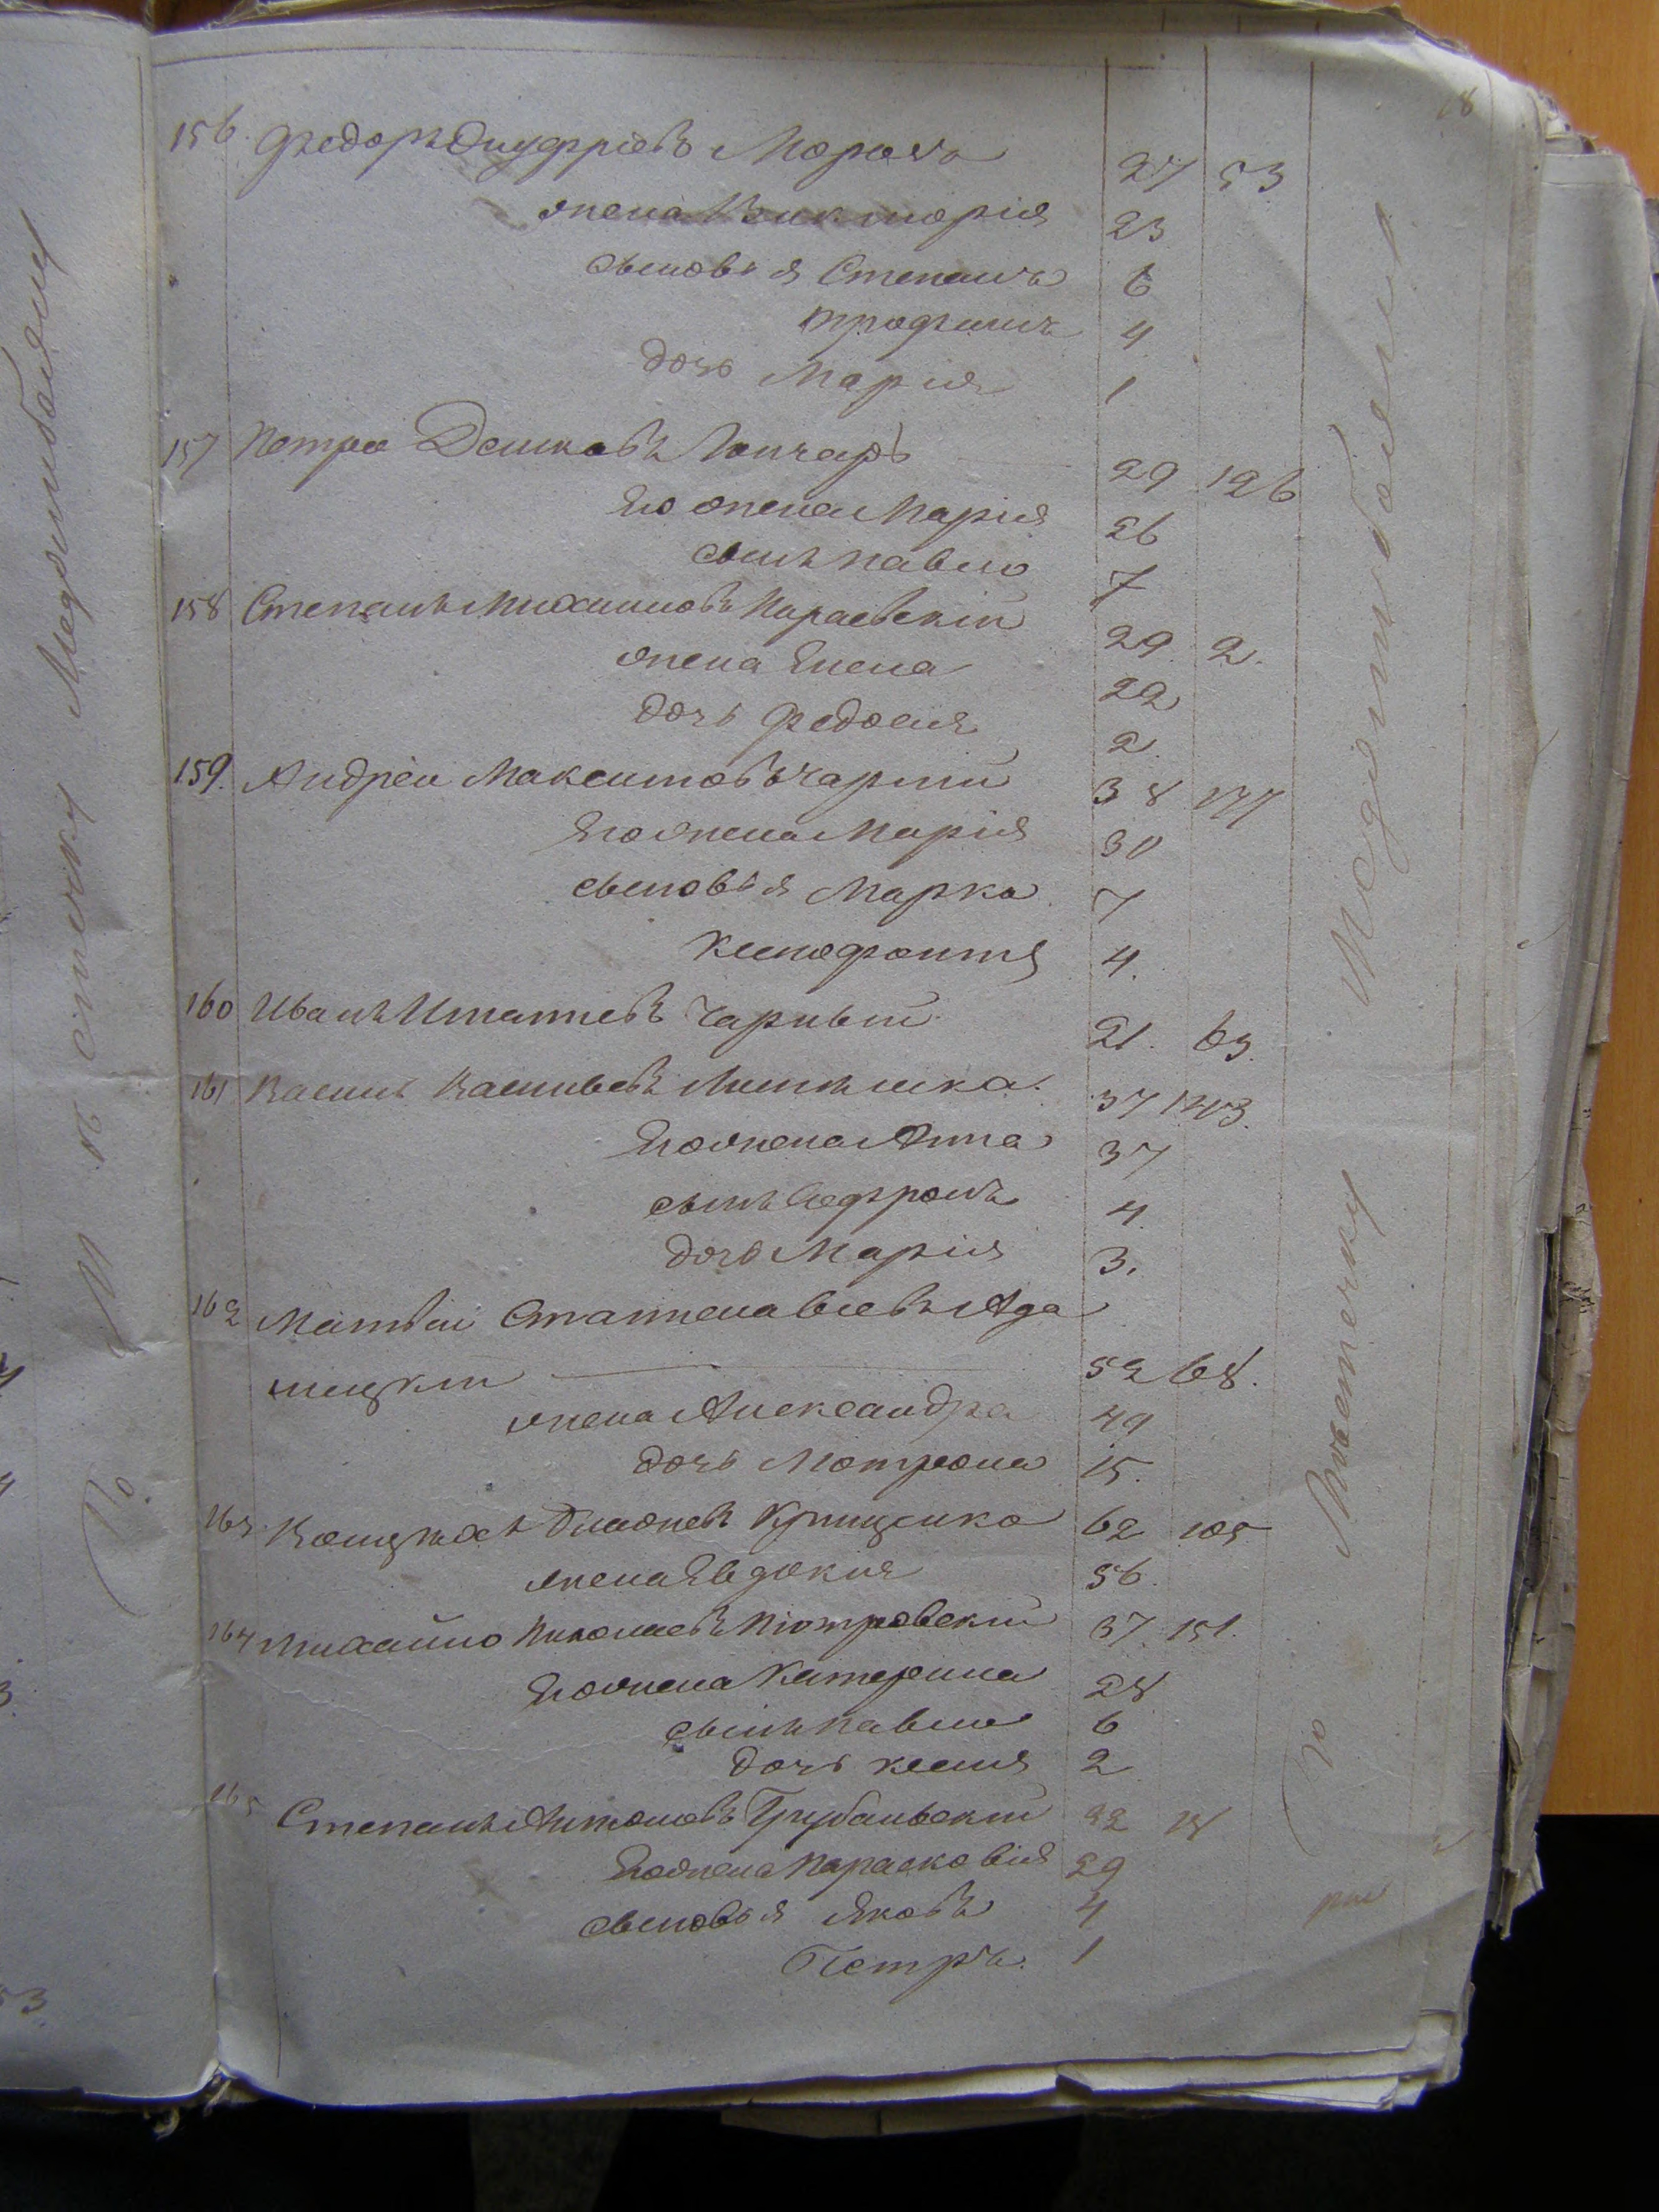 18
156. Федоръ Онуфріевъ Морозъ 27 53
жена Викторія 23
сыновья Степанъ 6
Трофимъ 4
дочь Марія 1
157 Петро Демковъ Гончаръ 29 126
Его жена Марія 26
сынъ Павло 7
158 Степанъ Михайловъ Кираевскій 29 2.
жена Елена 22
дочь Федосия 2
159. Андрей Максимовъ Чарный 38 177
Его жена Марія 30
сыновья Марко 7
Ксенофонтъ 4.
160 Иванъ Игнатіевъ Чарный 21. 63.
161 Василь Васильевъ 37 143.
Его жена Анна 37
сынъ Софронъ 4
дочь Марія 3.
162 Матвѣй Станиславовъ Ада
мецкій 52 68.
жена Александра 49
дочь Мотрона 15.
163. Войцѣхъ Криценко 62 105
жена Евдокия 56.
164 Михайло Николаевъ Піотровскій 37. 151.
Его жена Катерина 28
сынъ Павло 6
дочь Ксенія 2
165 Степанъ Антоновъ 32 18
Его жена Парасковія 29
сыновья Яковъ 4
Петръ. 1
По мѣстечку Меджибожу
По мѣстечку Меджибожу